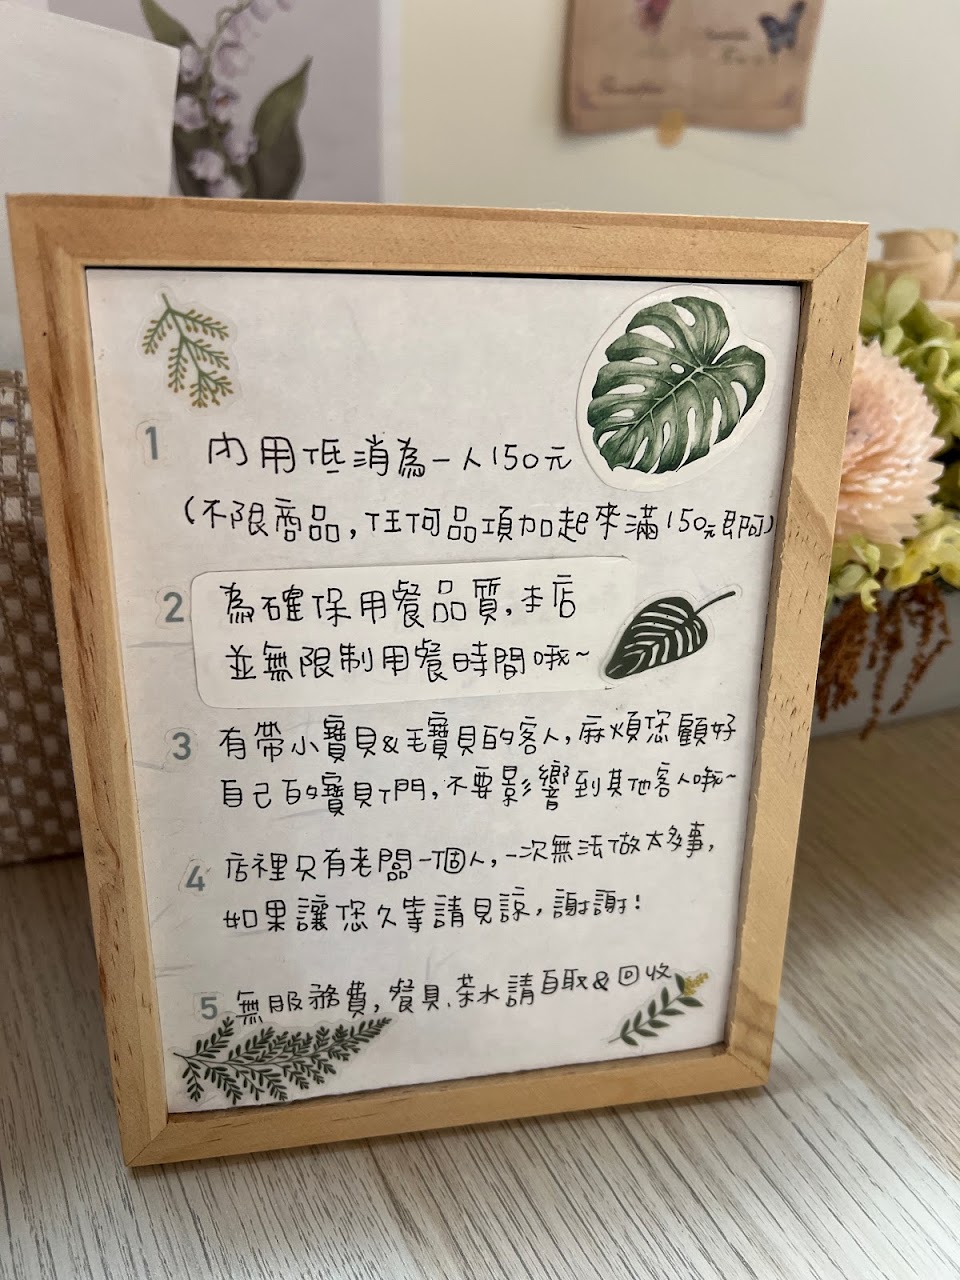 1 內用低消為一人150元
(不限商品,任何品項加起來滿150元即可)
2 為確保用餐品質,本店
並無限制用餐時間哦~
3 有帶小寶貝&毛寶貝的客人,麻煩您顧好
自己的寶貝們,不要影響到其他客人哦~
4 店裡只有老闆一個人,一次無法做太多事,
如果讓您久等請見諒,謝謝!
5 無服務費,餐具、茶水請自取&回收